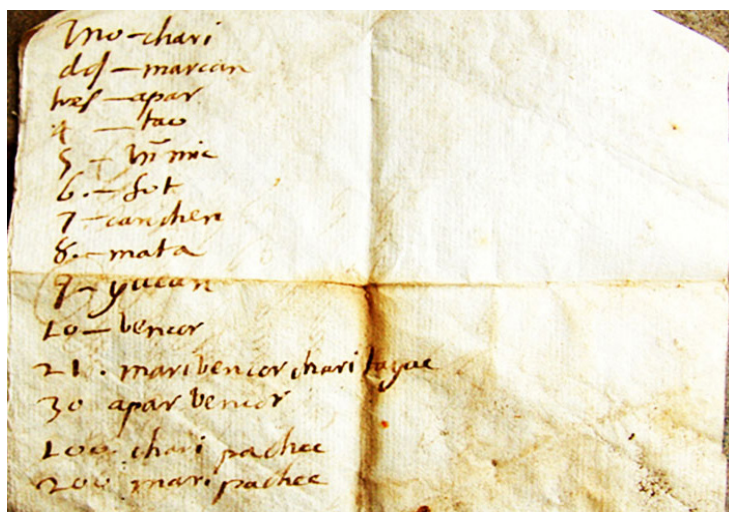 Uno-chari
dos-marian
tres-apar
4-tau
5-himic
6.-sut
7-canchen
8.-mata
9-yucan
10-bencor
21. maribencor chari tayac
30 apar bencor
100. chari pachac
200 mari pachac